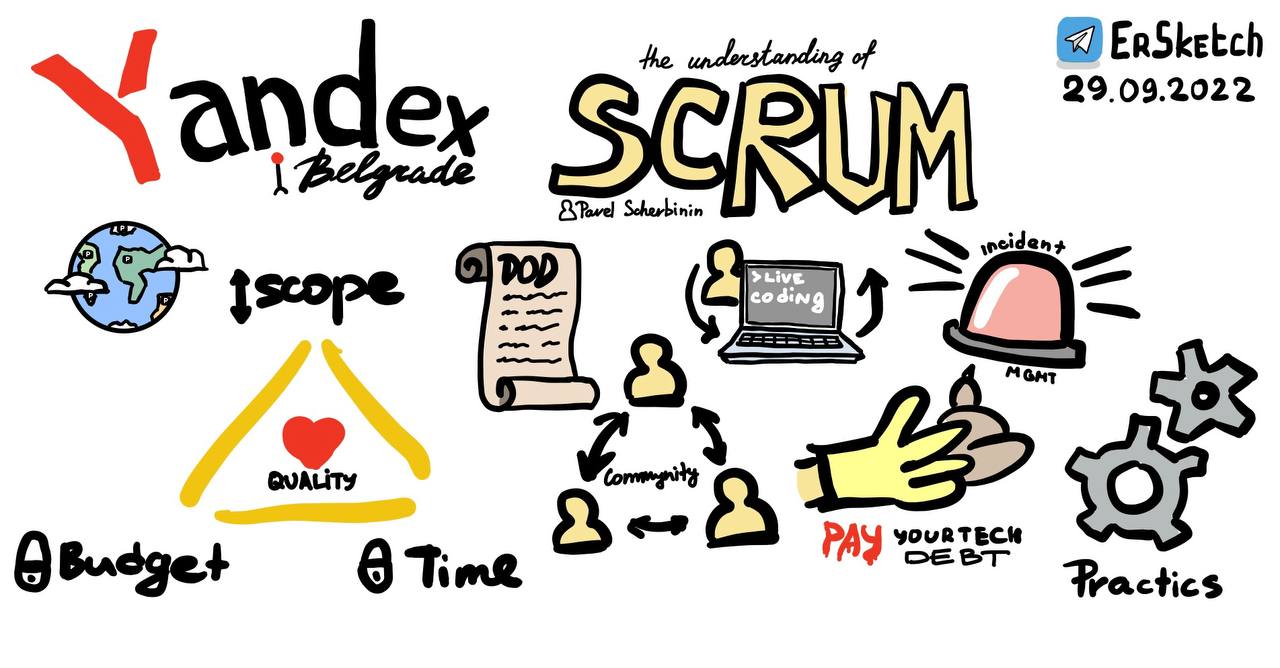 Yandex
Belgrade
the understanding of
SCRUM
Pavel Scherbinin
ErSketch
29.09.2022
P
P
P
P
P
scope
QUALITY
Budget
Time
DOD
>LIVE
coding
Community
incident
MGMT
PAY YOUR TECH
DEBT
Practics